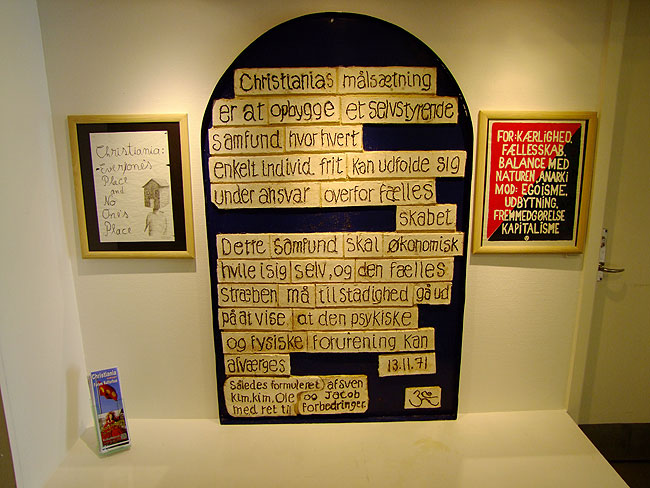 Christiania:
-Everyone's
Place
and
No
One's
Place
Christianias målsætning
er at opbygge et selvstyrende
samfund hvor hvert
enkelt individ frit kan udfolde sig
under ansvar overfor fælles
skabet
Dette samfund skal økonomisk
hvile i sig selv, og den fælles
stræben må til stadighed gå ud
på at vise, at den psykiske
og fysiske forurening kan
afværges 13.11.71
Således formuleret af sven
kim, kim, Ole og Jacob
med ret til forbedringer.
FOR: KÆRLIGHED,
FÆLLESSKAB,
BALANCE MED
NATUREN, ANARKI
MOD: EGOISME,
UDBYTNING,
FREMMEDGØRELSE
KAPITALISME
Christiania